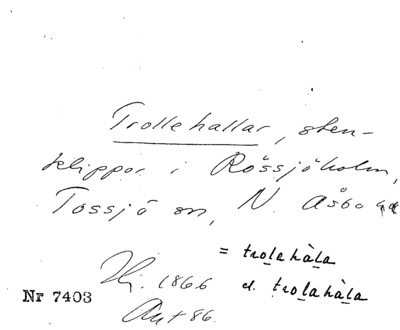 Trollehallar, sten-
klippor i Rössjöholm,
Tossjö sn, N. Åsbo hd
= trolahàla
Hj. 1866 el. trolahàla
Nr 7403
86.